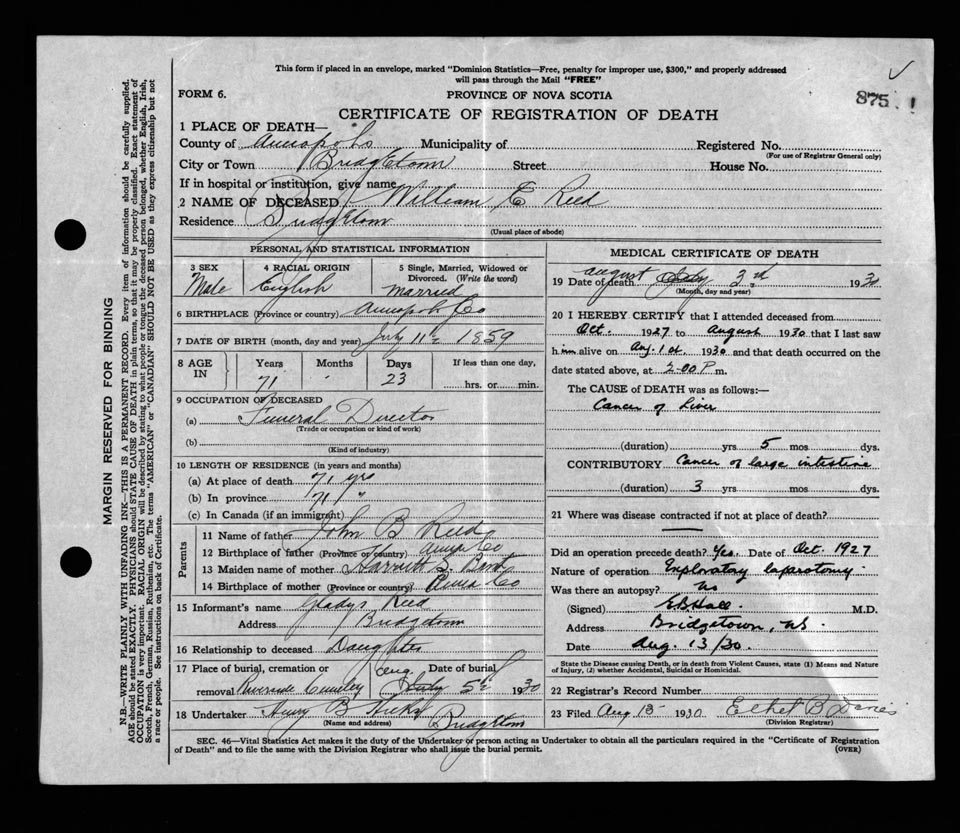 This form if placed in an envelope, marked "Dominion Statistics—Free, penalty for improper use, $300," and properly addressed
will pass through the Mail "FREE"
FORM 6.
PROVINCE OF NOVA SCOTIA
875
CERTIFICATE OF REGISTRATION OF DEATH
1 PLACE OF DEATH—
County of Annapolis Municipality of Registered No.
(For use of Registrar General only)
City or Town Bridgetown Street House No.
If in hospital or institution, give name
2 NAME OF DECEASED William E Reed
Residence Bridgetown
(Usual place of abode)
PERSONAL AND STATISTICAL INFORMATION
3 SEX 4 RACIAL ORIGIN 5 Single, Married, Widowed or
Divorced. (Write the word)
Male English Married
6 BIRTHPLACE (Province or country) Annapolis Co
7 DATE OF BIRTH (month, day and year) July 11th 1859
8 AGE IN Years Months Days If less than one day,
71 23 hrs. or min.
9 OCCUPATION OF DECEASED
(a) Funeral Director
(Trade or occupation or kind of work)
(b)
(Kind of industry)
10 LENGTH OF RESIDENCE (in years and months)
(a) At place of death 71 yrs
(b) In province 71 "
(c) In Canada (if an immigrant)
Parents
11 Name of father John B Reed
12 Birthplace of father (Province or country) Anna Co
13 Maiden name of mother S.
14 Birthplace of mother (Province or country) Anna Co
15 Informant's name Gladys Reed
Address Bridgetown
16 Relationship to deceased Daughter
17 Place of burial, cremation or Date of burial
removal Riverside Aug July 5th 1930
18 Undertaker Henry B Hicks Bridgetown
(Name and address)
MEDICAL CERTIFICATE OF DEATH
19 Date of death August July 3rd 1930
(Month, day and year)
20 I HEREBY CERTIFY that I attended deceased from
Oct. 1927 to August 1930 that I last saw
him alive on Aug. 1st 1930 and that death occurred on the
date stated above, at 2.00 P m.
The CAUSE of DEATH was as follows:—
Cancer of Liver
(duration) yrs 5 mos dys.
CONTRIBUTORY Cancer of large intestine
(duration) 3 yrs mos dys.
21 Where was disease contracted if not at place of death?
Did an operation precede death? Yes. Date of Oct. 1927
Nature of operation Exploratory laparotomy.
Was there an autopsy? No
(Signed) E.B. Hall. M.D.
Address Bridgetown, N.S.
Date Aug. 13/30.
State the Disease causing Death, or in Death from Violent Causes, state (1) Means and Nature
of Injury, (2) whether Accidental, Suicidal or Homicidal.
22 Registrar's Record Number
23 Filed Aug 13 1930 Ethel B
(Division Registrar)
SEC. 46—Vital Statistics Act makes it the duty of the Undertaker or person acting as Undertaker to obtain all the particulars required in the "Certificate of Registration
of Death" and to file the same with the Division Registrar who shall issue the burial permit.
(OVER)
MARGIN RESERVED FOR BINDING
N.B.—WRITE PLAINLY WITH UNFADING INK—THIS IS A PERMANENT RECORD. Every item of information should be carefully supplied.
AGE should be stated EXACTLY. PHYSICIANS should STATE CAUSE OF DEATH in plain terms, so that it may be properly classified. Exact statement of
OCCUPATION is very important. RACIAL ORIGIN will be described by stating to what people or tongue the deceased person belonged, whether English, Irish,
Scotch, French, German, Russian, Ruthenian, etc. The terms "AMERICAN" or "CANADIAN" SHOULD NOT BE USED as they express citizenship but not
a race or people. See instructions on back of Certificate.